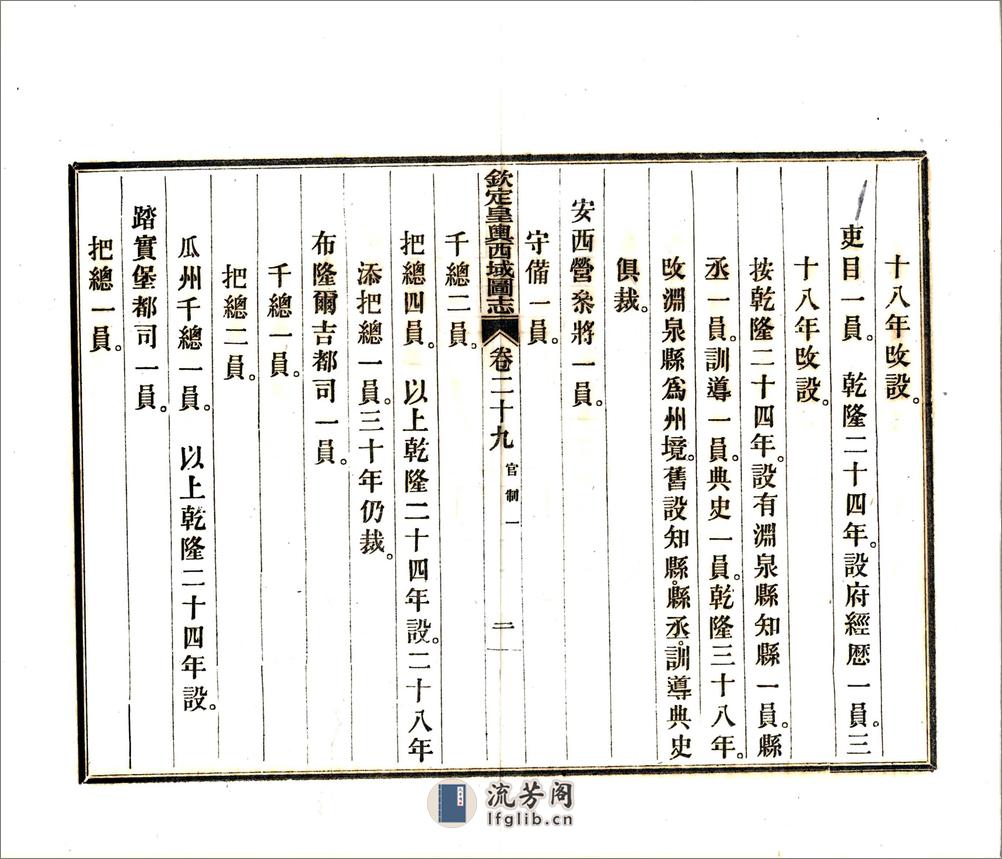 十八年改設。
吏目一員。 乾隆二十四年。設府經歷一員。三
十八年改設。
按乾隆二十四年。設有淵泉縣知縣一員。縣
丞一員。訓導一員。典史一員。乾隆三十八年。
改淵泉縣爲州境。舊設知縣。縣丞。訓導典史
俱裁。
安西營叅將一員。
守備一員。
欽定皇輿西域圖志 卷二十九 官制一 二
千總二員。
把總四員。 以上乾隆二十四年設。二十八年
添把總一員。三十年仍裁。
布隆爾吉都司一員。
千總一員。
把總二員。
瓜州千總一員。 以上乾隆二十四年設。
踏實堡都司一員。
把總一員。
流芳阁
lfglib.cn